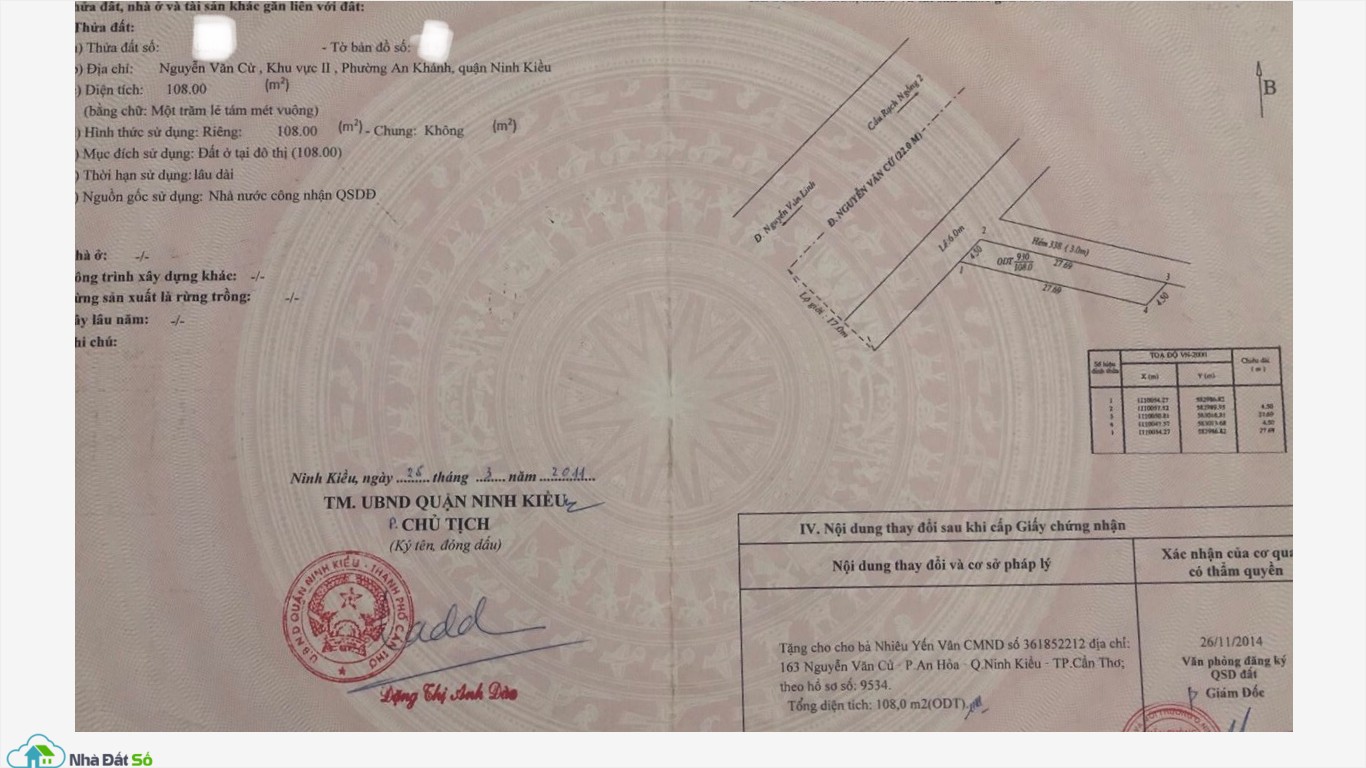 hửa đất, nhà ở và tài sản khác gắn liền với đất:
Thửa đất:
) Thửa đất số: - Tờ bản đồ số:
) Địa chỉ: Nguyễn Văn Cừ , Khu vực II , Phường An Khánh, quận Ninh Kiều
) Diện tích: 108.00 (m²)
(bằng chữ: Một trăm lẻ tám mét vuông)
) Hình thức sử dụng: Riêng: 108.00 (m²) - Chung: Không (m²)
) Mục đích sử dụng: Đất ở tại đô thị (108.00)
) Thời hạn sử dụng: lâu dài
) Nguồn gốc sử dụng: Nhà nước công nhận QSDĐ
hà ở: -/-
ông trình xây dựng khác: -/-
ừng sản xuất là rừng trồng: -/-
ây lâu năm: -/-
hi chú:
Ninh Kiều, ngày 26 tháng 3 năm 2011
TM. UBND QUẬN NINH KIỀU
P. CHỦ TỊCH
(Ký tên, đóng dấu)
U.B.N.D QUẬN NINH KIỀU - THÀNH PHỐ CẦN THƠ
Đặng Thị Anh Đào
B
Cầu Rạch Ngỗng 2
Đ. NGUYỄN VĂN CỪ (22.0 M)
Đ Nguyễn Văn Linh
Lề:6.0m
Lộ giới : 17.0m
Hẻm 338 ( 3.0m)
2
4.50
1
ODT 930
108.0
27.69
27.69
3
4.50
4
Số hiệu đỉnh thửa
TOẠ ĐỘ VN-2000
Chiều dài
( m )
X (m)
Y (m)
1
2 4.50
3 27.69
4 4.50
1 27.69
IV. Nội dung thay đổi sau khi cấp Giấy chứng nhận
Nội dung thay đổi và cơ sở pháp lý
Xác nhận của cơ qua
có thẩm quyền
Tặng cho cho bà Nhiêu Yến Vân CMND số 361852212 địa chỉ:
163 Nguyễn Văn Cừ - P.An Hòa - Q.Ninh Kiều - TP.Cần Thơ;
theo hồ sơ số: 9534.
Tổng diện tích: 108,0 m2(ODT).
26/11/2014
Văn phòng đăng ký
QSD đất
Giám Đốc
Nhà Đất Số